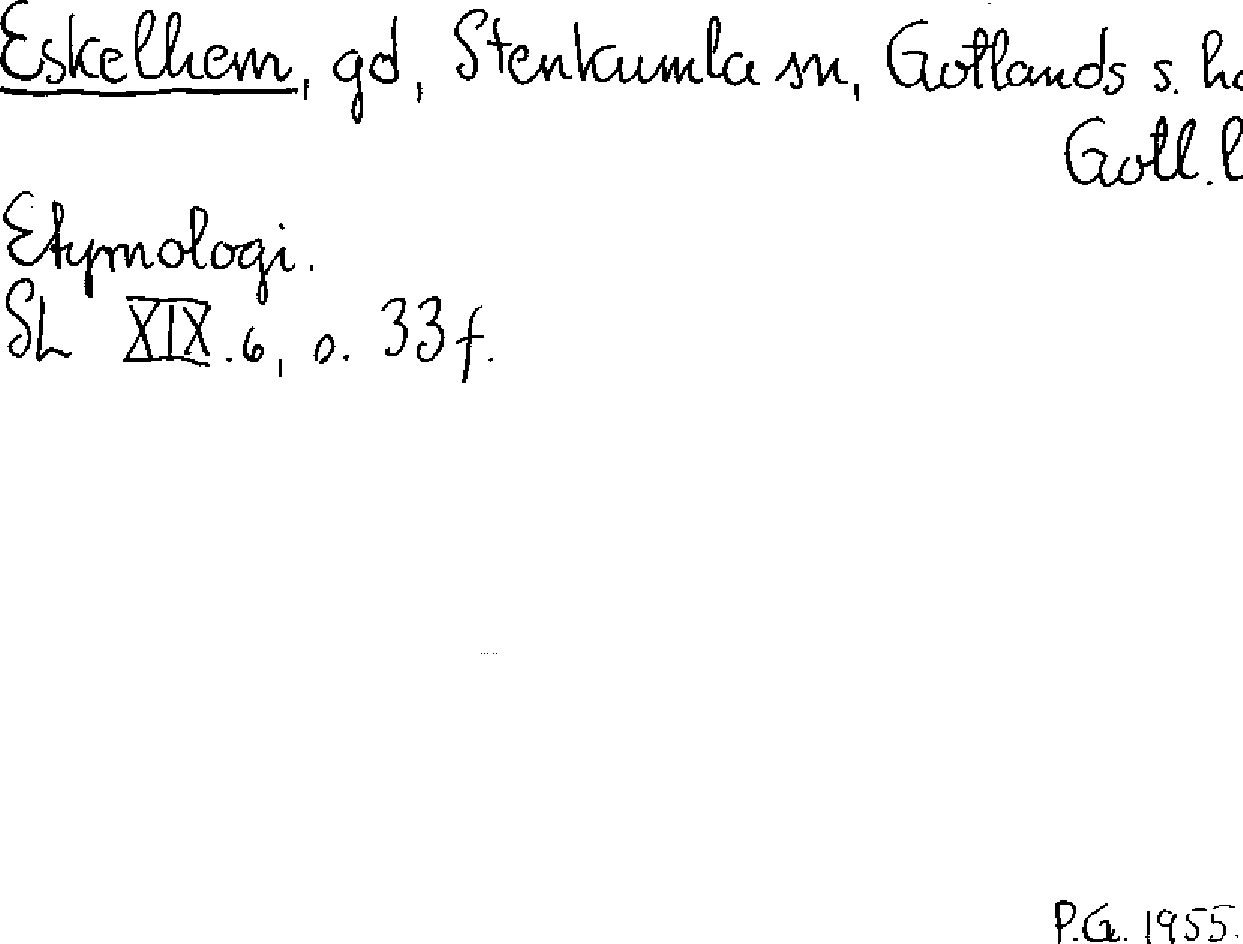 Eskelhem, gd, Stenkumla sn, Gotlands s. 
Gotl.
Etymologi.
SL XIX.6, s. 33f.
P.G. 1955.